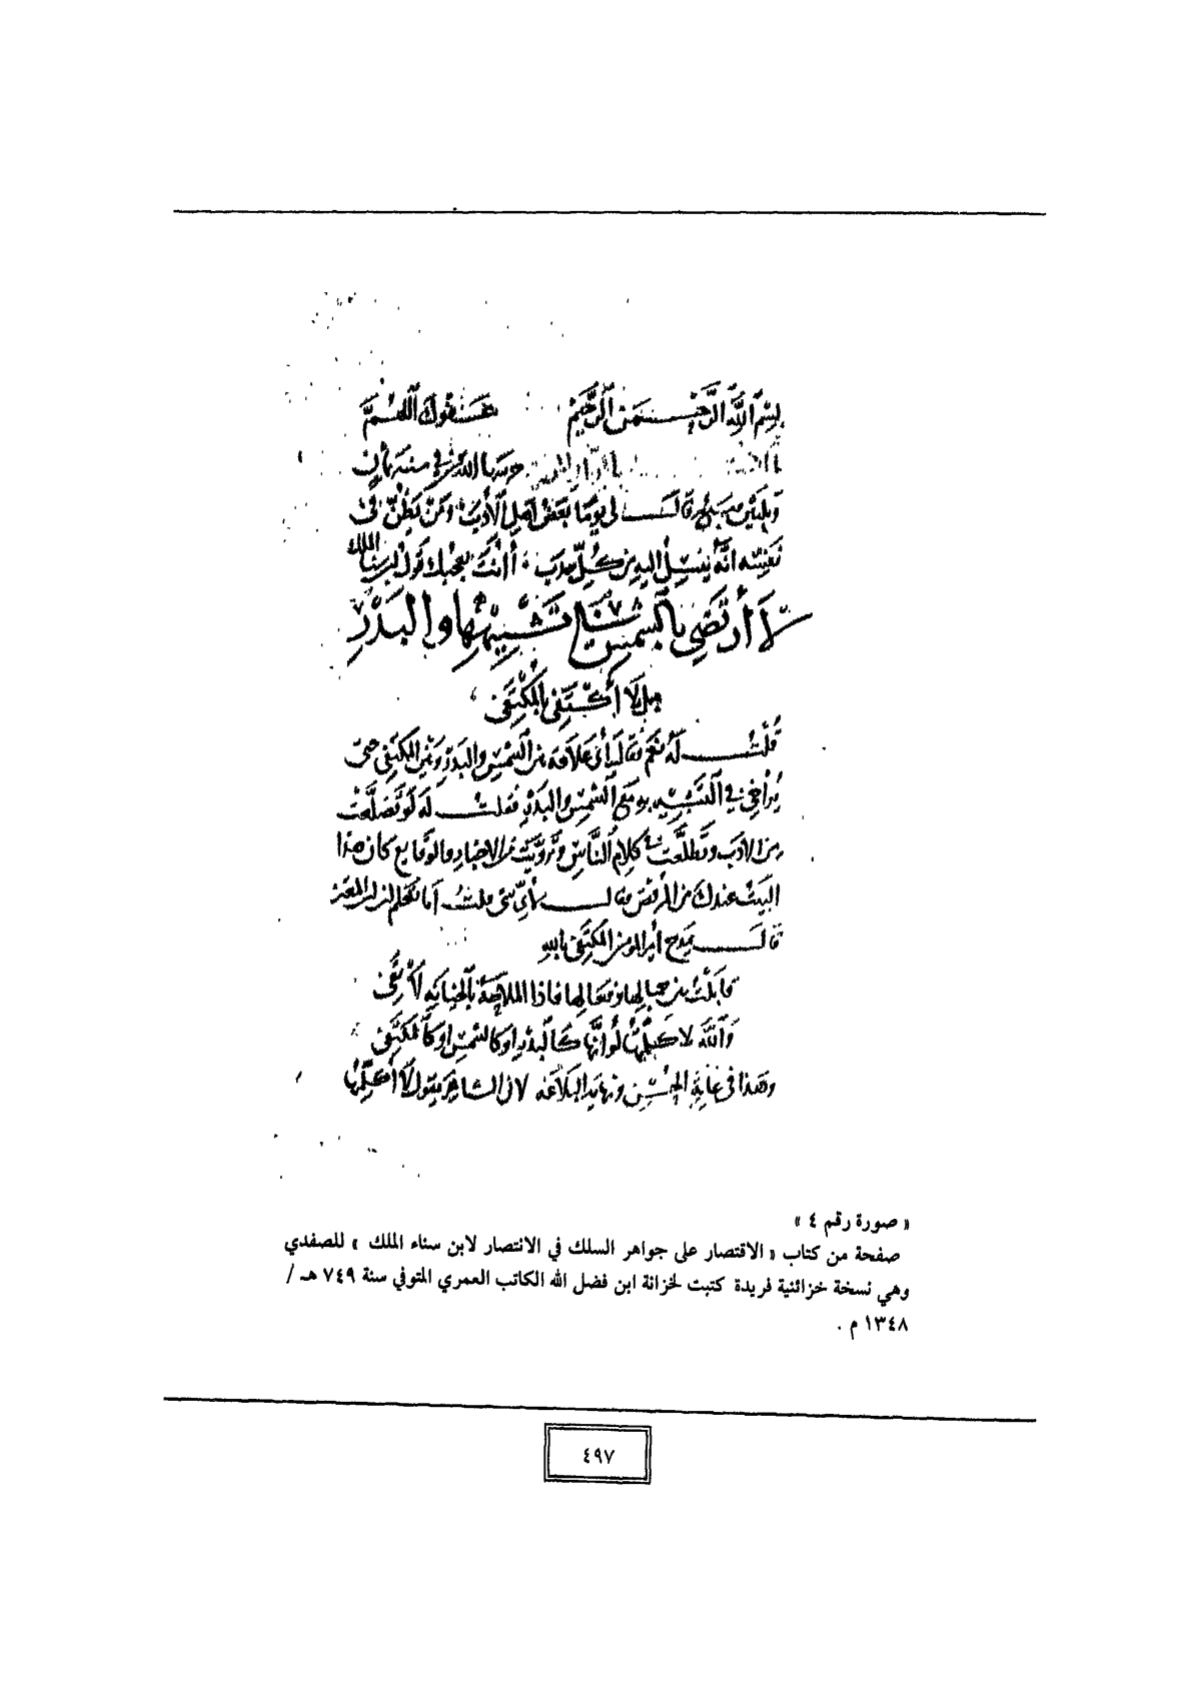 بسم الله الرحمن الرحيم عفوك اللهم
في سنة ثمان
وثلثين وسبع مائة قال لي يومًا بعض أهل الأدب ومن يظن في
نفسه انه ينسل اليه من كل حدب أأنت يعجبك قول ابن سنا الملك
لا أرتضي بالشمس تشبيهها والبدر
بل لا أكتفي بالمكتفي
قلت له نعم فقال أي علاقة بين الشمس والبدر وبين المكتفي حتى
في التشبيه مع الشمس والبدر فقلت له لو تضلعت
من الادب وتطلعت كلام الناس وترويت من الاخبار والوقايع كان هذا
البيت عندك من المرقص فقال بأي شي قلت أما تعلم ان ابن المعتز
قال يمدح أمير المومنين المكتفي بالله
قايست بين جمالها وفعالها فاذا الملاحة بالخيانة لا تفي
والله لا كلمتها لو أنها كالبدر او كالشمس او كالمكتفي
وهذا في غاية الحسن ونهاية البلاغة لان الشاعر يقول لا أكلمها
« صورة رقم ٤ »
صفحة من كتاب « الاقتصار على جواهر السلك في الانتصار لابن سناء الملك » للصفدي
وهي نسخة خزائنية فريدة كتبت لخزانة ابن فضل الله الكاتب العمري المتوفي سنة ٧٤٩ هـ /
١٣٤٨ م .
٤٩٧